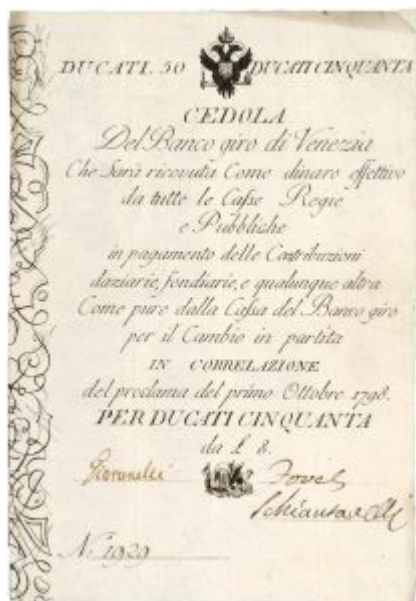 DUCATI. 50 DUCATI CINQUANTA
CEDOLA
Del Banco giro di Venezia
Che Sarà ricevuta Come dinaro effettivo
da tutte le Casse Regie
e Pubbliche
in pagamento delle Contribuzioni
daziarie, fondiarie, e qualunque altra
Come pure dalla Cassa del Banco giro
per il Cambio in partita
IN CORRELAZIONE
del proclama del primo Ottobre 1798.
PER DUCATI CINQUANTA
da £ 8.
Giovanelli
N. 1929